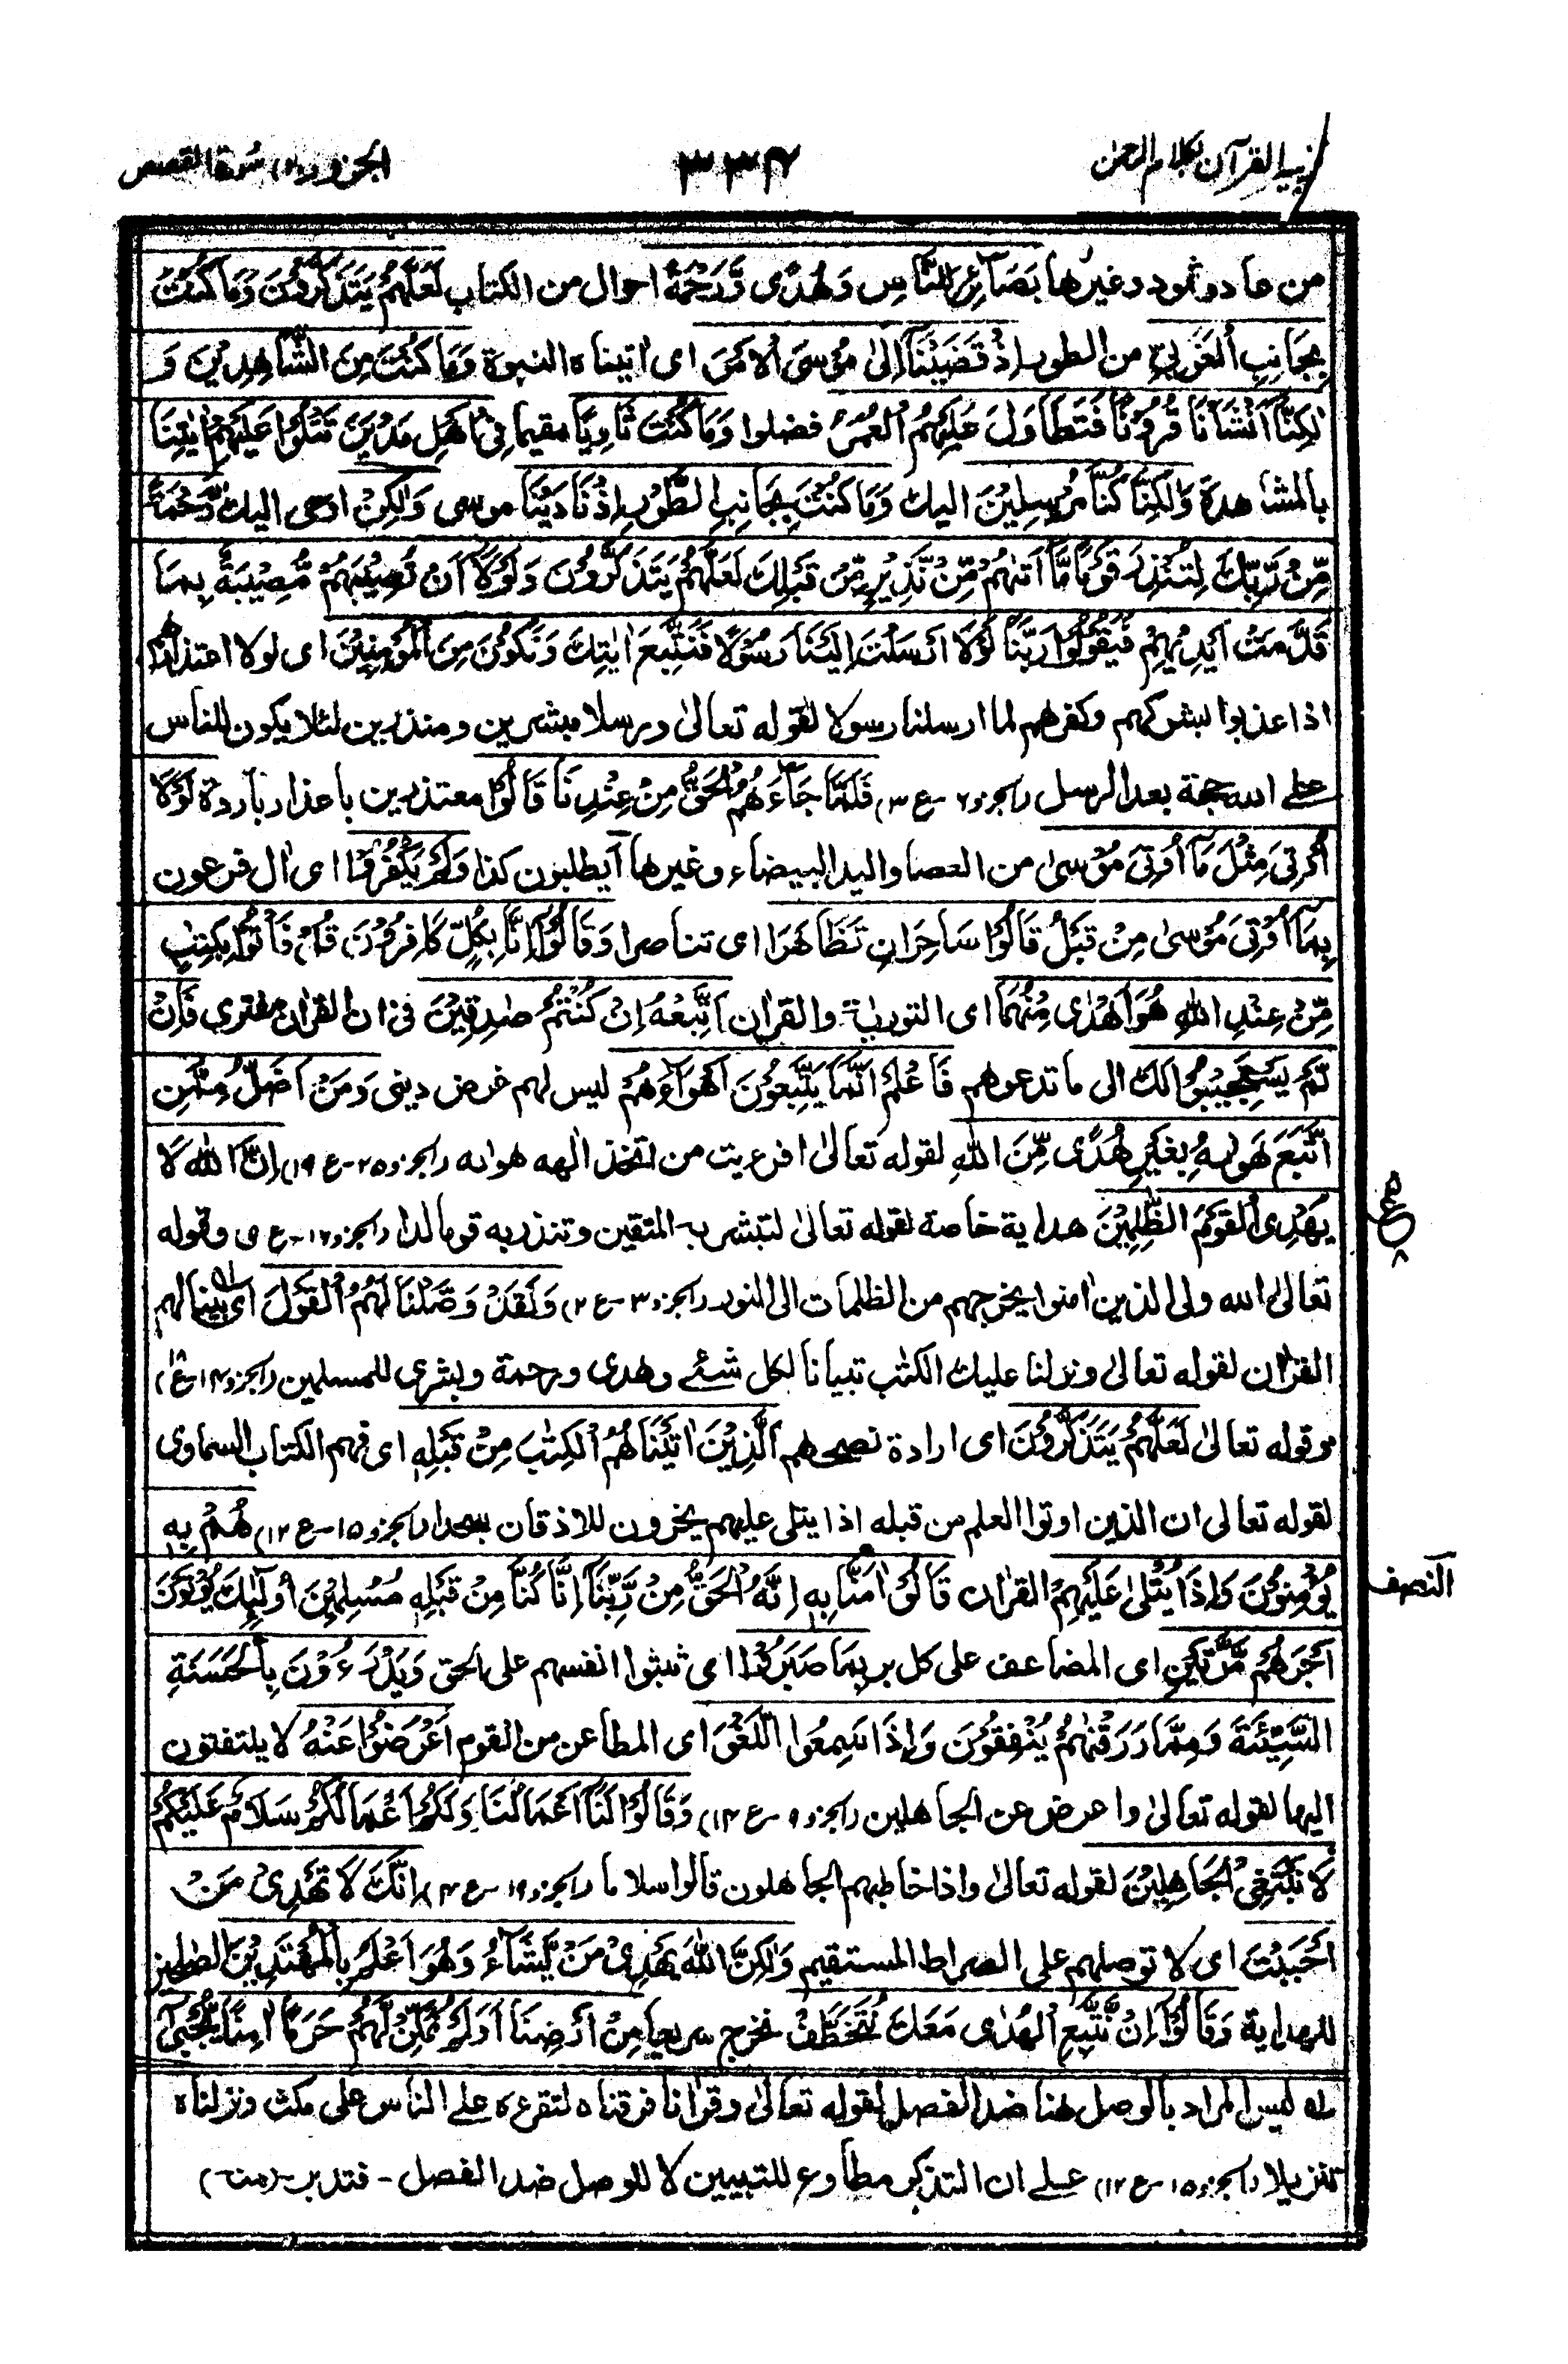 تفسير القرآن بكلام الرحمن ٣٣٧ الجزء (٢٠) سورة القصص
من عاد وثمود وغيرها بَصَآئِرَ لِلنَّاسِ وَهُدًى وَّرَحْمَةً احوال من الكتاب لَعَلَّهُمْ يَتَذَكَّرُوْنَ وَمَا كُنْتَ
بِجَانِبِ الْغَرْبِيِّ من الطور اِذْ قَضَيْنَآ اِلٰى مُوْسَى الْاَمْرَ اى اٰتيناه النبوة وَمَا كُنْتَ مِنَ الشَّاهِدِيْنَ وَ
لٰكِنَّآ اَنْشَاْنَا قُرُوْنًا فَتَطَاوَلَ عَلَيْهِمُ الْعُمُرُ فضلوا وَمَا كُنْتَ ثَاوِيًا مقيما فِىْٓ اَهْلِ مَدْيَنَ تَتْلُوْا عَلَيْهِمْ اٰيٰتِنَا
بالمشاهدة وَلٰكِنَّا كُنَّا مُرْسِلِيْنَ اليك وَمَا كُنْتَ بِجَانِبِ الطُّوْرِ اِذْ نَادَيْنَا موسى وَلٰكِنْ اوحى اليك رَّحْمَةً
مِّنْ رَّبِّكَ لِتُنْذِرَ قَوْمًا مَّآ اَتٰهُمْ مِّنْ نَّذِيْرٍ مِّنْ قَبْلِكَ لَعَلَّهُمْ يَتَذَكَّرُوْنَ وَلَوْلَآ اَنْ تُصِيْبَهُمْ مُّصِيْبَةٌ بِمَا
قَدَّمَتْ اَيْدِيْهِمْ فَيَقُوْلُوْا رَبَّنَا لَوْلَآ اَرْسَلْتَ اِلَيْنَا رَسُوْلًا فَنَتَّبِعَ اٰيٰتِكَ وَنَكُوْنَ مِنَ الْمُؤْمِنِيْنَ اى لولا اعتذارهم
اذا عذبوا بشركهم وكفرهم لما ارسلنا رسولا لقوله تعالىٰ ورسلا مبشرين ومنذرين لئلا يكون للناس
على الله حجة بعد الرسل (الجزو ٦ - ع ٣) فَلَمَّا جَآءَهُمُ الْحَقُّ مِنْ عِنْدِنَا قَالُوْا معتذرين باعذار باردة لَوْلَآ
اُوْتِىَ مِثْلَ مَآ اُوْتِىَ مُوْسٰى من العصا واليد البيضاء وغيرها اَيطلبون كذا وَلَمْ يَكْفُرُوْا اى اٰل فرعون
بِمَآ اُوْتِىَ مُوْسٰى مِنْ قَبْلُ قَالُوْا سَاحِرَانِ تَظَاهَرَا اى تناصرا وَقَالُوْٓا اِنَّا بِكُلٍّ كَافِرُوْنَ قُلْ فَاْتُوْا بِكِتٰبٍ
مِّنْ عِنْدِ اللّٰهِ هُوَ اَهْدٰى مِنْهُمَآ اى التورىٰة والقراٰن اَتَّبِعْهُ اِنْ كُنْتُمْ صٰدِقِيْنَ فى ان القراٰن مفترى فَاِنْ
لَّمْ يَسْتَجِيْبُوْا لَكَ الى ما تدعوهم فَاعْلَمْ اَنَّمَا يَتَّبِعُوْنَ اَهْوَآءَهُمْ ليس لهم غرض دينى وَمَنْ اَضَلُّ مِمَّنِ
اتَّبَعَ هَوٰىهُ بِغَيْرِ هُدًى مِّنَ اللّٰهِ لقوله تعالىٰ افرءيت من اتخذ الٰهه هوىٰه (الجزو ٢٥ - ع ١٩) اِنَّ اللّٰهَ لَا
يَهْدِى الْقَوْمَ الظّٰلِمِيْنَ هداية خاصة لقوله تعالىٰ لتبشر به المتقين وتنذر به قوما لدا (الجزو ١٦ - ع وقوله
تعالىٰ الله ولى الذين اٰمنوا يخرجهم من الظلمات الى النور (الجزو ٣ - ع ٢) وَلَقَدْ وَصَّلْنَا لَهُمُ الْقَوْلَ اى بينا لهم
القراٰن لقوله تعالىٰ ونزلنا عليك الكتٰب تبيانا لكل شئ وهدى ورحمة وبشرى للمسلمين (الجزو ١٤ - ع ١٨)
وقوله تعالىٰ لَعَلَّهُمْ يَتَذَكَّرُوْنَ اى ارادة نصحهم اَلَّذِيْنَ اٰتَيْنَاهُمُ الْكِتٰبَ مِنْ قَبْلِهٖ اى فهم الكتاب السماوى
لقوله تعالى ان الذين اوتوا العلم من قبله اذا يتلى عليهم يخرون للاذقان سجدا (الجزو ١٥ - ع ١٢) هُمْ بِهٖ
يُؤْمِنُوْنَ وَاِذَا يُتْلٰى عَلَيْهِمْ القراٰن قَالُوْٓا اٰمَنَّا بِهٖٓ اِنَّهُ الْحَقُّ مِنْ رَّبِّنَآ اِنَّا كُنَّا مِنْ قَبْلِهٖ مُسْلِمِيْنَ اُولٰٓئِكَ يُؤْتَوْنَ
النصف
اَجْرَهُمْ مَّرَّتَيْنِ اى المضاعف على كل بر بِمَا صَبَرُوْا اى ثبتوا انفسهم على الحق وَيَدْرَءُوْنَ بِالْحَسَنَةِ
السَّيِّئَةَ وَمِمَّا رَزَقْنٰهُمْ يُنْفِقُوْنَ وَاِذَا سَمِعُوا اللَّغْوَ اى المطاعن من القوم اَعْرَضُوْا عَنْهُ لا يلتفتون
اليها لقوله تعالىٰ واعرض عن الجاهلين (الجزو ٩ - ع ١٤) وَقَالُوْا لَنَآ اَعْمَالُنَا وَلَكُمْ اَعْمَالُكُمْ سَلَامٌ عَلَيْكُمْ
لَا نَبْتَغِى الْجَاهِلِيْنَ لقوله تعالىٰ واذا خاطبهم الجاهلون قالوا سلاما (الجزو ١٩ - ع ٤) اِنَّكَ لَا تَهْدِىْ مَنْ
اَحْبَبْتَ اى لا توصلهم على الصراط المستقيم وَلٰكِنَّ اللّٰهَ يَهْدِىْ مَنْ يَّشَآءُ وَهُوَ اَعْلَمُ بِالْمُهْتَدِيْنَ الصالحين
للهداية وَقَالُوْٓا اِنْ نَّتَّبِعِ الْهُدٰى مَعَكَ نُتَخَطَّفْ نخرج سريعا مِنْ اَرْضِنَا اَوَلَمْ نُمَكِّنْ لَّهُمْ حَرَمًا اٰمِنًا يُّجْبٰٓى
له ليس المراد بالوصل هنا ضد الفصل لقوله تعالىٰ وقراٰنا فرقناه لتقرءه على الناس على مكث ونزلناه
تنزيلا (الجزو ١٥ - ع ١٢) على ان التذكر مطاوع للتبيين لا للوصل ضد الفصل - فتدبر - (منه)